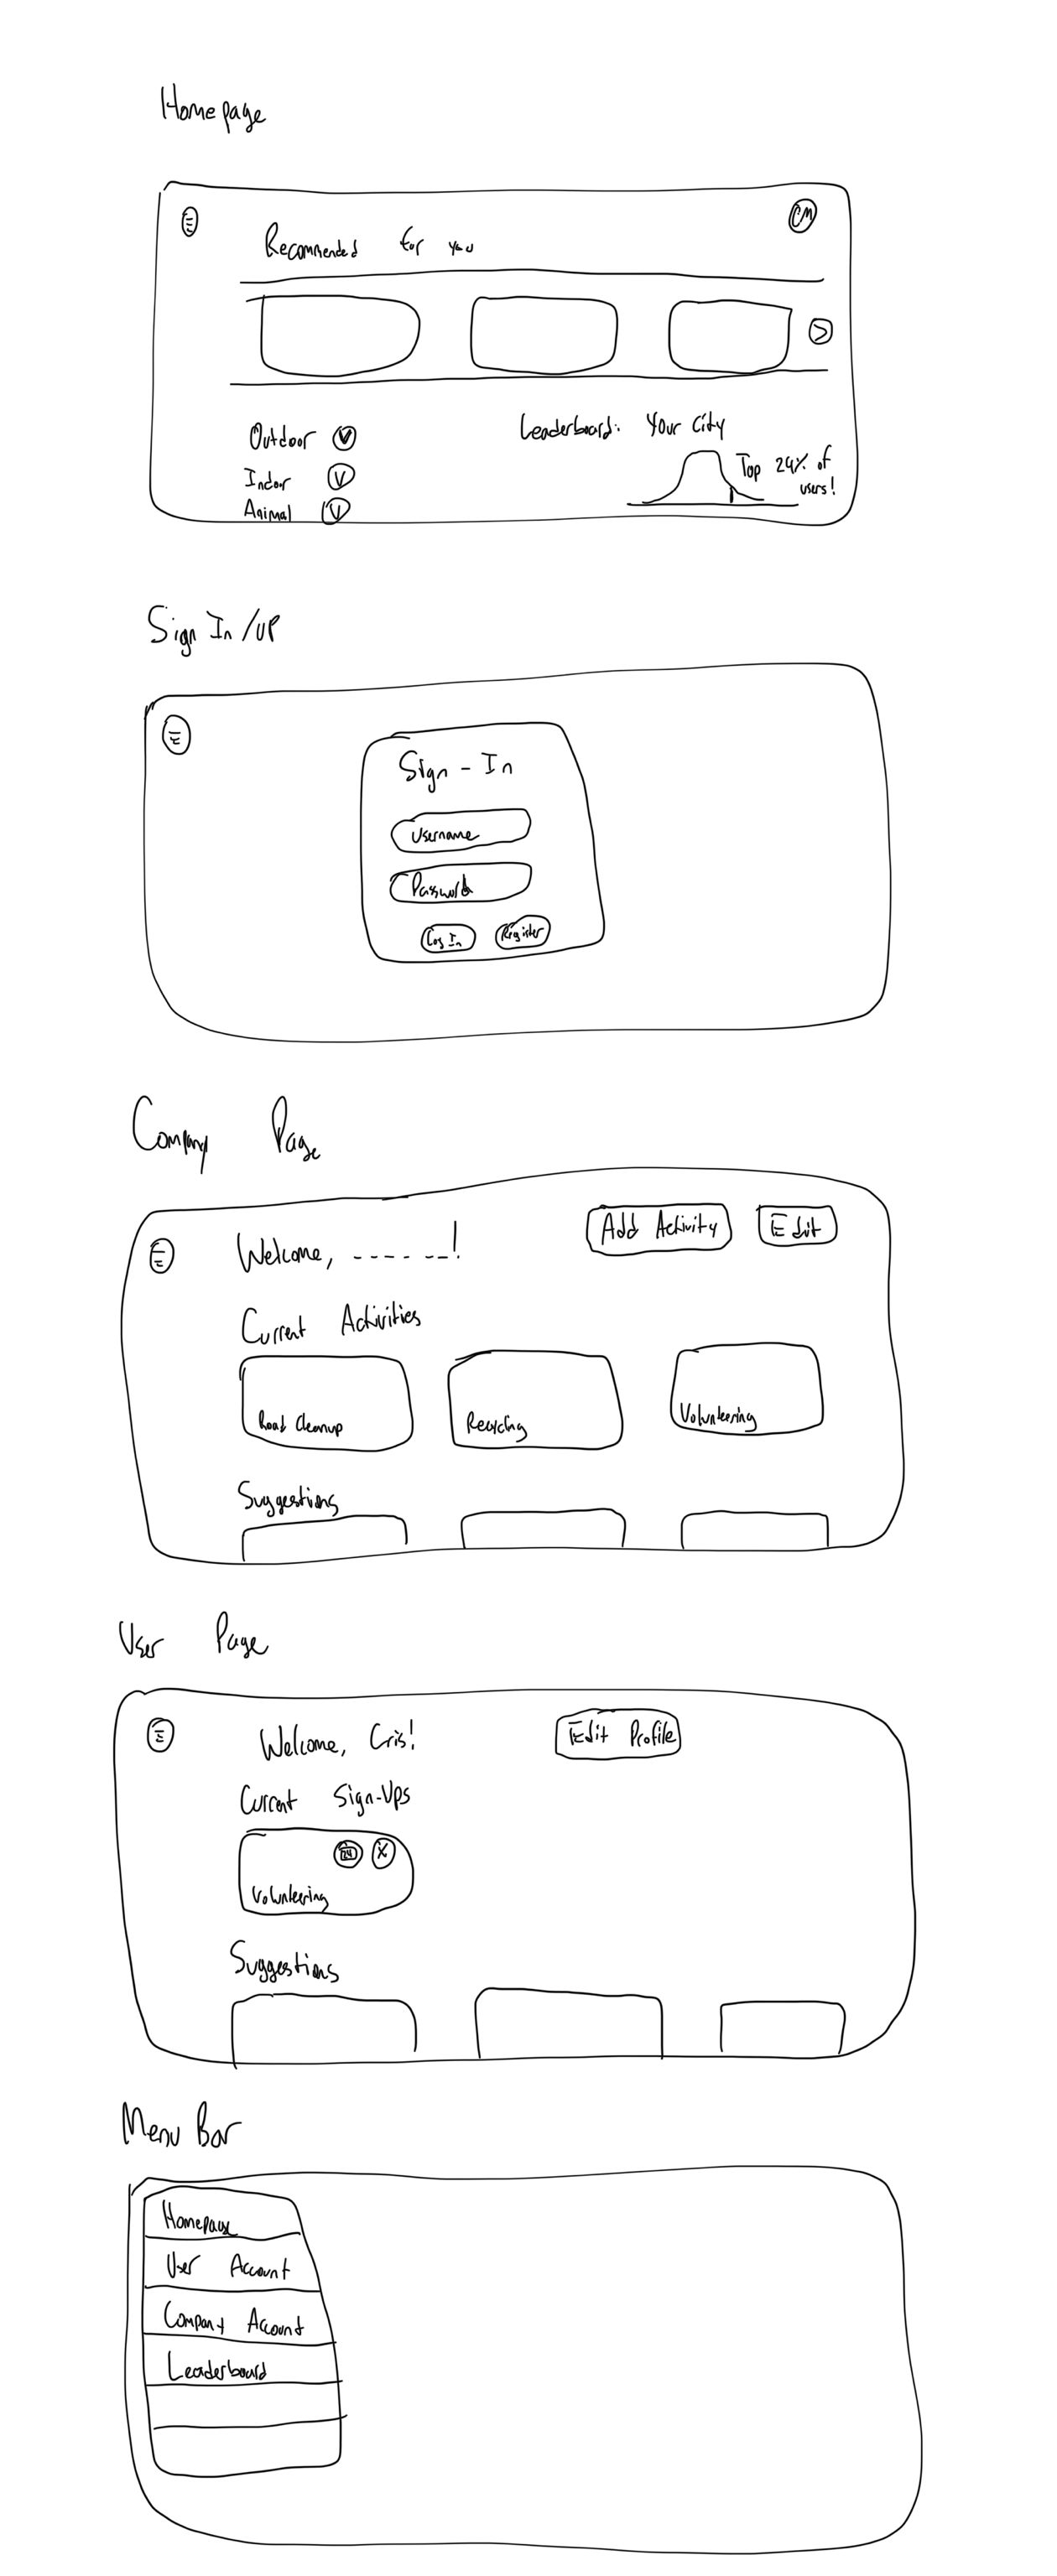 Homepage
CM
Recommended for you
>
Outdoor V
Leaderboard: Your City
Indoor V
Top 24% of
users!
Animal V
Sign In/UP
Sign-In
Username
Password
Log In Register
Company Page
Welcome, ------!
Add Activity
Edit
Current Activities
Road Cleanup
Recycling
Volunteering
Suggestions
User Page
Welcome, Cris!
Edit Profile
Current Sign-Ups
24 X
Volunteering
Suggestions
Menu Bar
Homepage
User Account
Company Account
Leaderboard